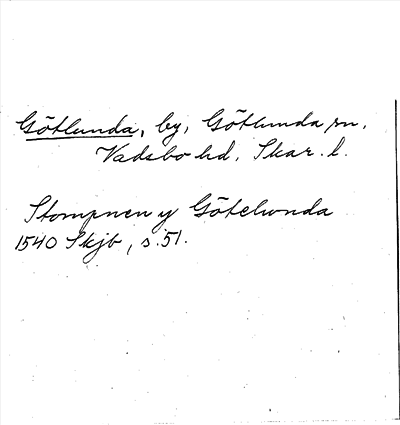 Götlunda, by, Götlunda sn,
Vadsbo hd, Skar. l.
Stompnen y Götelwnda
1540 Skjb, s. 51.